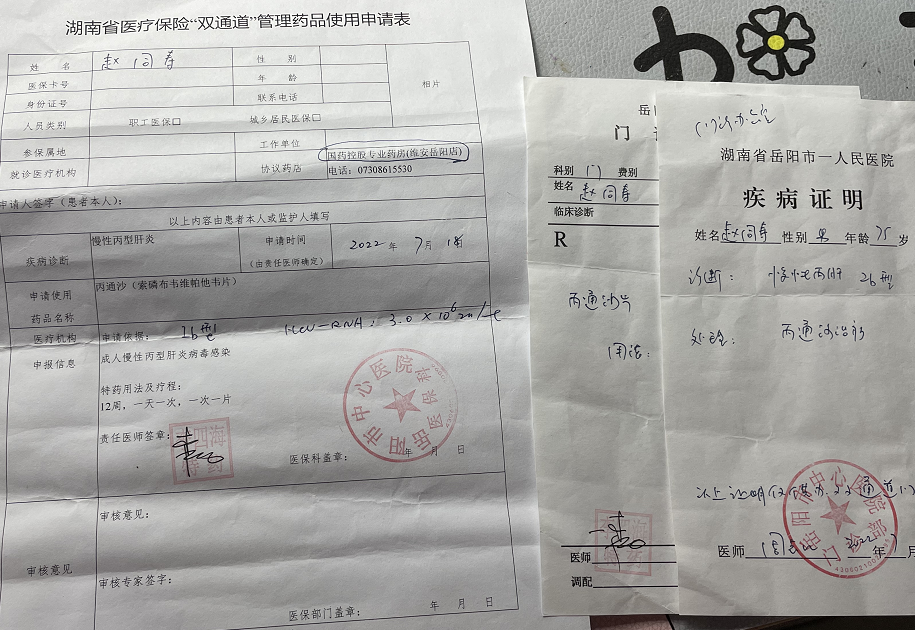 湖南省医疗保险“双通道”管理药品使用申请表
姓 名 赵同寿 性 别
医保卡号 年 龄
身份证号 联系电话
相片
人员类别 职工医保□ 城乡居民医保□
参保属地 工作单位
就诊医疗机构 协议药店
国药控股专业药房(维安岳阳店)
电话：07308615530
申请人签字（患者本人）：
以上内容由患者本人或监护人填写
疾病诊断 慢性丙型肝炎 申请时间
（由责任医师确定）
2022年 7月 日
申请使用
药品名称
丙通沙（索磷布韦维帕他韦片）
医疗机构
申报信息
申请依据： HCV-RNA: 3.0×10⁶
成人慢性丙型肝炎病毒感染
特药用法及疗程：
12周，一天一次，一次一片
责任医师签章：
四海
特药
医保科盖章： 年 月 日
岳阳市中心医院医保科
审核意见
审核意见：
审核专家签字：
医保部门盖章： 年 月 日
岳
门
科别 门 费别
姓名 赵同寿
临床诊断
R
丙通沙片
用法：
医师
调配
门诊办
湖南省岳阳市一人民医院
疾病证明
姓名 赵同寿 性别 男 年龄 75 岁
诊断： 慢性丙肝 2b型
处理： 丙通沙治疗
以上证明仅供办双通道
医师 周 2022年 月
岳阳市中心医院